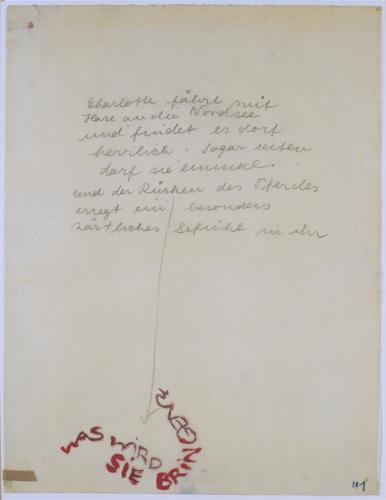 Charlotte fährt mit
Hase an die Nordsee
und findet es dort
herrlich. Sogar reiten
darf sie einmal.
und der Rücken des Pferdes
erregt ein besonders
zärtliches Gefühl in ihr
WAS WIRD
SIE BRINGEN?